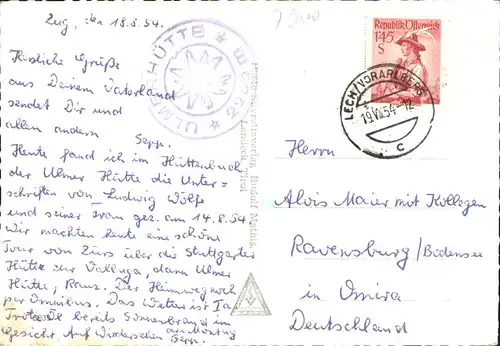 Zug, den 18.8.54.
Herzliche Grüße
aus Deinem Vaterland
sendet Dir und
allen andern
Sepp.
Heute fand ich im Hüttenbuch
der Ulmer Hütte die Unter-
schriften von Ludwig
und seiner Frau gez. am 14.8.54.
Wir machten heute eine schöne
Tour von Zürs über die Stuttgarter
Hütte zur Valluga, dann Ulmer
Hütte, Rauz. Der Heimweg noch
per Omnibus. Das Wetter ist Ia
Trotz Öl bereits Sonnenbrand im
Gesicht. Auf Wiedersehen am Montag
Sepp.
ULMER HÜTTE
Republik Österreich
1.45
S
LECH/VORARLBERG
19.VIII.54-12
c
Herrn
Alois Maier mit Kollegen
Ravensburg/Bodensee
in Omira
Deutschland